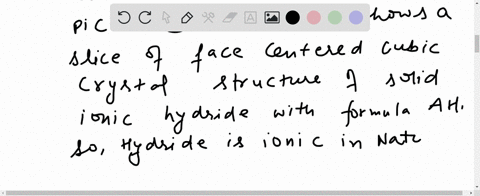 pic hows a
slice of face centered cubic
crystal structure of solid
ionic hydride with formula AH.
so, Hydride is ionic in Natu